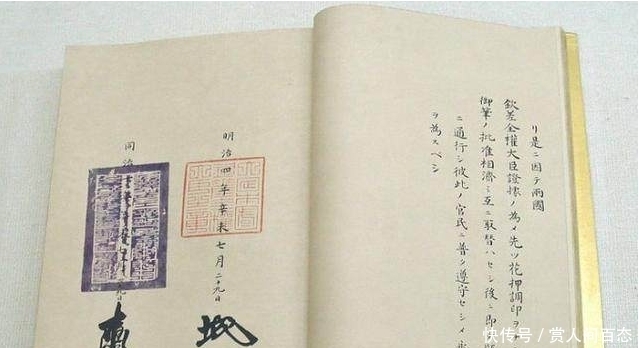 リ是ニ因テ兩國
欽差全權大臣證據ノ為メ先ツ花押調印ヲ
御筆ノ批准相濟ミ互ニ取替ハセシ後シ即
ニ通行シ彼此ノ官民ニ普ク遵守セシメ
ヲ為スベシ
明治四年辛未七月二十九日
同治
快传号/赏人间百态